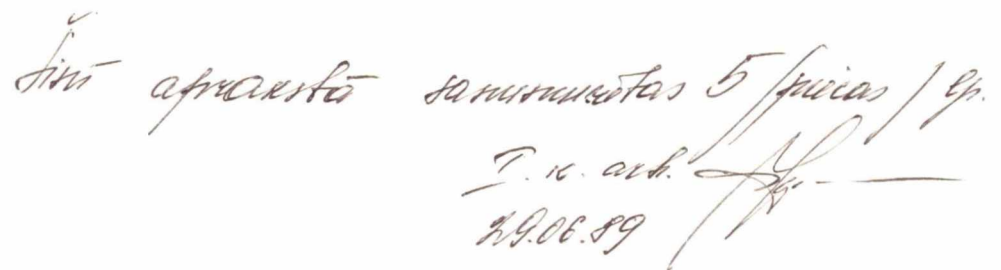 Šinī aprakstā sanumurētas 5 /piecas/ lp.
I. k. arh.
29.06.89